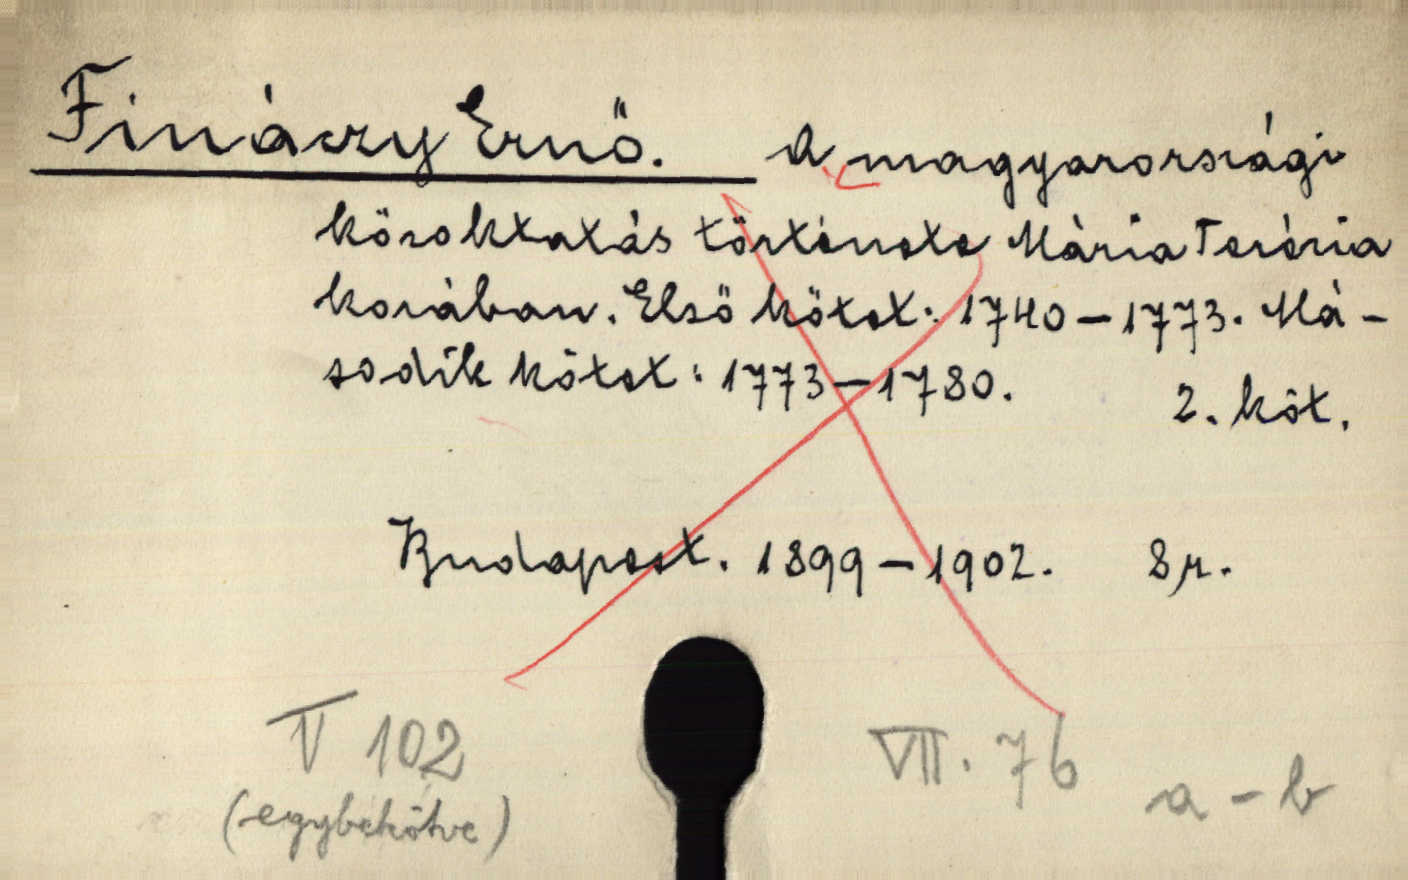 Fináczy Ernő. A magyarországi
közoktatás története Mária Terézia
korában. Első kötet: 1740–1773. Má-
sodik kötet: 1773–1780. 2. köt.
Budapest. 1899–1902. 8r.
V 102 VII. 76 a-b
(egybekötve)